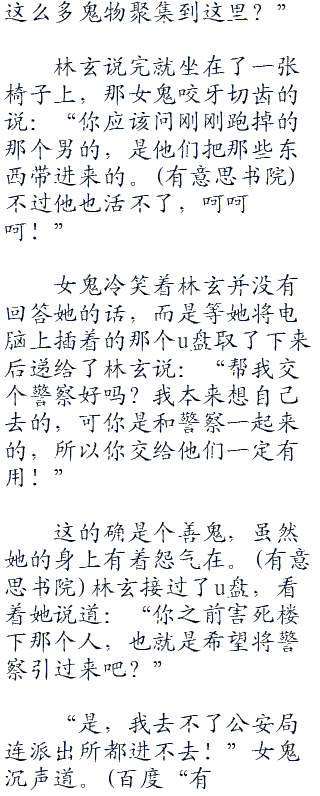 这么多鬼物聚集到这里？”
林玄说完就坐在了一张
椅子上，那女鬼咬牙切齿的
说：“你应该问刚刚跑掉的
那个男的，是他们把那些东
西带进来的。(有意思书院)
不过他也活不了，呵呵
呵！”
女鬼冷笑着林玄并没有
回答她的话，而是等她将电
脑上插着的那个u盘取了下来
后递给了林玄说：“帮我交
个警察好吗？我本来想自己
去的，可你是和警察一起来
的，所以你交给他们一定有
用！”
这的确是个善鬼，虽然
她的身上有着怨气在。(有意
思书院)林玄接过了u盘，看
着她说道：“你之前害死楼
下那个人，也就是希望将警
察引过来吧？”
“是，我去不了公安局
连派出所都进不去！”女鬼
沉声道。(百度“有